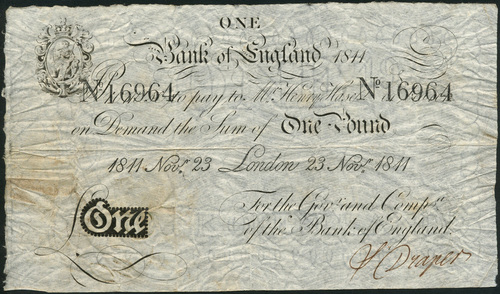 ONE
Bank of England 1811
No 16964 I Promise to pay to Mr. Henry Hase No 16964
on Demand the Sum of One Pound
1811 Novr. 23 London 23 Novr. 1811
For the Govr. and Compa.
£ One of the Bank of England.
J Draper